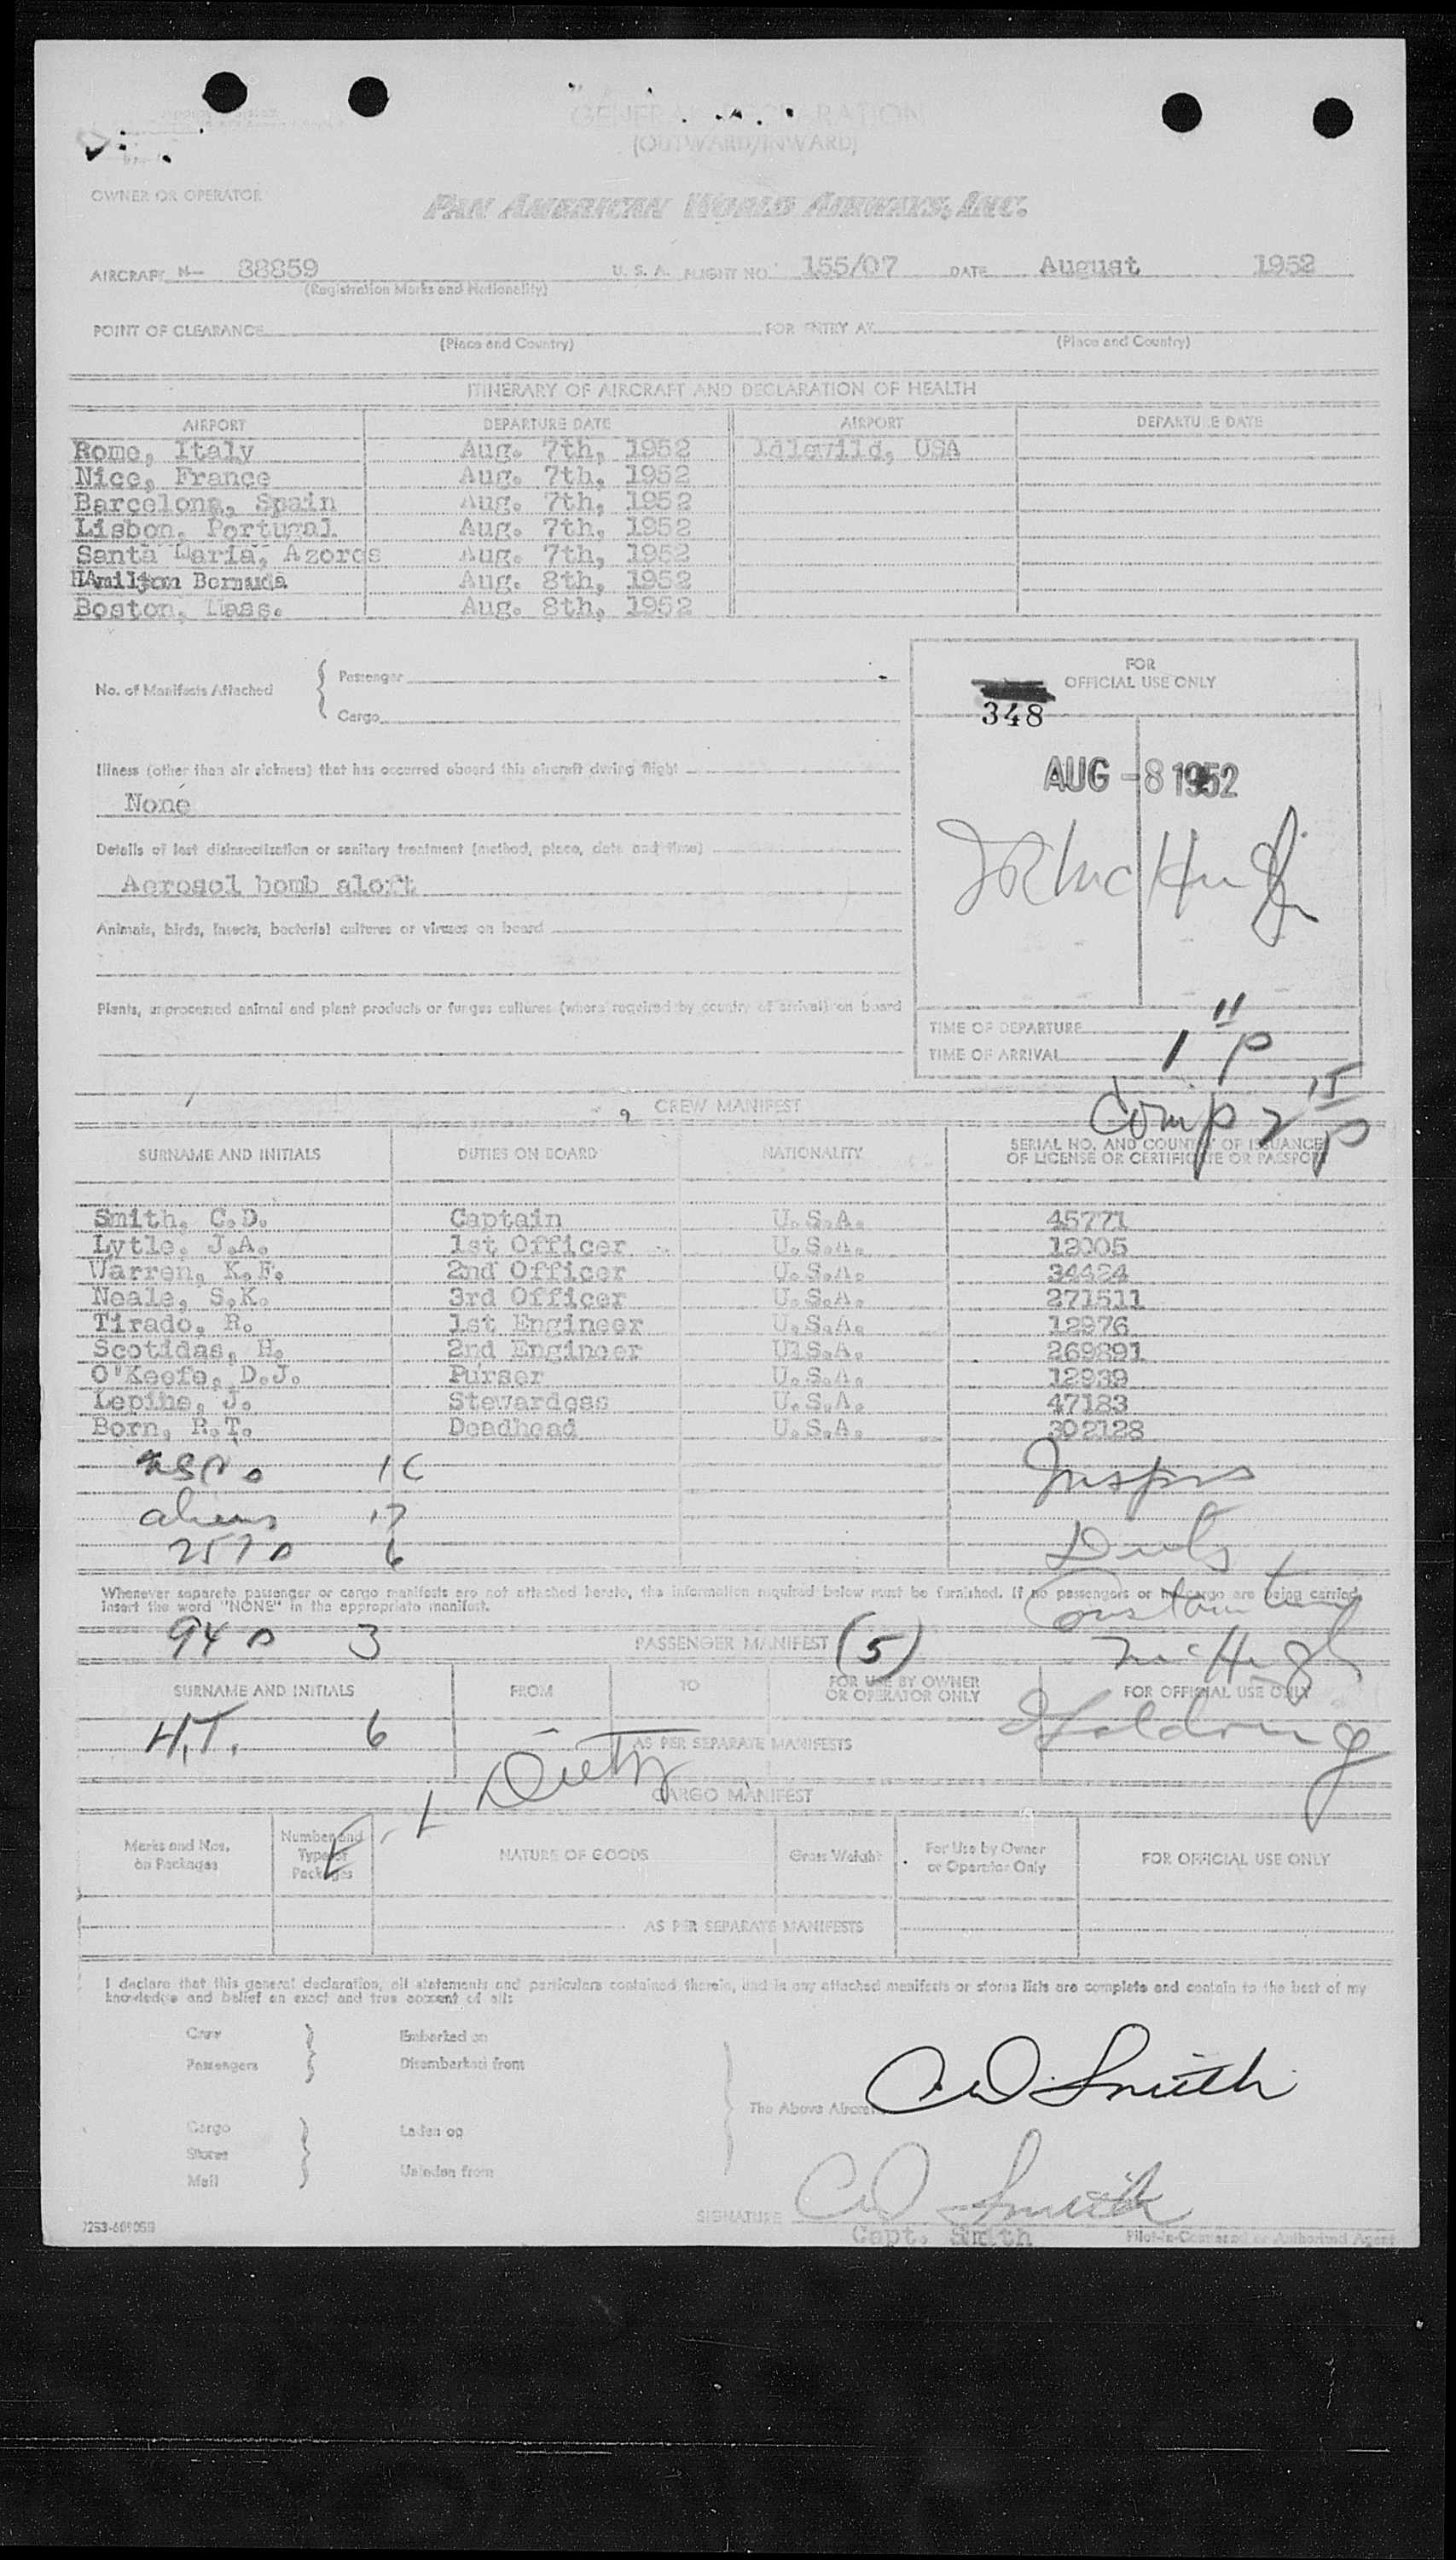 GENERAL DECLARATION
(OUTWARD/INWARD)
OWNER OR OPERATOR
PAN AMERICAN WORLD AIRWAYS, INC.
AIRCRAFT N— 88859 U. S. A. FLIGHT NO. 155/07 DATE August 1952
(Registration Marks and Nationality)
POINT OF CLEARANCE FOR ENTRY AT
(Place and Country) (Place and Country)
ITINERARY OF AIRCRAFT AND DECLARATION OF HEALTH
AIRPORT DEPARTURE DATE AIRPORT DEPARTURE DATE
Rome, Italy Aug. 7th, 1952 Idlewild, USA
Nice, France Aug. 7th, 1952
Barcelona, Spain Aug. 7th, 1952
Lisbon, Portugal Aug. 7th, 1952
Santa Maria, Azores Aug. 7th, 1952
HAmilton Bermuda Aug. 8th, 1952
Boston, Mass. Aug. 8th, 1952
FOR
OFFICIAL USE ONLY
No. of Manifests Attached { Passenger
Cargo
348
Illness (other than air sickness) that has occurred aboard this aircraft during flight
AUG -8 1952
None
Details of last disinsectization or sanitary treatment (method, place, date and time)
JR McHugh
Aerosol bomb aloft
Animals, birds, insects, bacterial cultures or viruses on board
Plants, unprocessed animal and plant products or fungus cultures (where required by country of arrival) on board
TIME OF DEPARTURE
TIME OF ARRIVAL 1 11 P
Comp 2 15 P
CREW MANIFEST
SURNAME AND INITIALS DUTIES ON BOARD NATIONALITY SERIAL NO. AND COUNTRY OF ISSUANCE
OF LICENSE OR CERTIFICATE OR PASSPORT
Smith, C.D. Captain U.S.A. 45771
Lytle, J.A. 1st Officer U.S.A. 12005
Warren, K.F. 2nd Officer U.S.A. 34424
Neale, S.K. 3rd Officer U.S.A. 271511
Tirado, R. 1st Engineer U.S.A. 12976
Scotidas, H. 2nd Engineer U1S.A. 269891
O'Keefe, D.J. Purser U.S.A. 12939
Lepine, J. Stewardess U.S.A. 47183
Born, R.T. Deadhead U.S.A. 302128
Insprs
aliens 17
6
Whenever separate passenger or cargo manifests are not attached hereto, the information required below must be furnished. If no passengers or no cargo are being carried,
insert the word "NONE" in the appropriate manifest.
3 PASSENGER MANIFEST (5) McHugh
SURNAME AND INITIALS FROM TO FOR USE BY OWNER
OR OPERATOR ONLY FOR OFFICIAL USE ONLY
H.T. 6 AS PER SEPARATE MANIFESTS
Dietz
CARGO MANIFEST
Marks and Nos.
on Packages Number and
Type of
Packages NATURE OF GOODS Gross Weight For Use by Owner
or Operator Only FOR OFFICIAL USE ONLY
AS PER SEPARATE MANIFESTS
I declare that this general declaration, all statements and particulars contained therein, and in any attached manifests or stores lists are complete and contain to the best of my
knowledge and belief an exact and true account of all:
Crew Embarked on
Passengers Disembarked from
CD Smith
The Above Aircraft
Cargo Laden on
Stores
Mail Unladen from
SIGNATURE CD Smith
Capt. Smith Pilot-in-Command or Authorized Agent